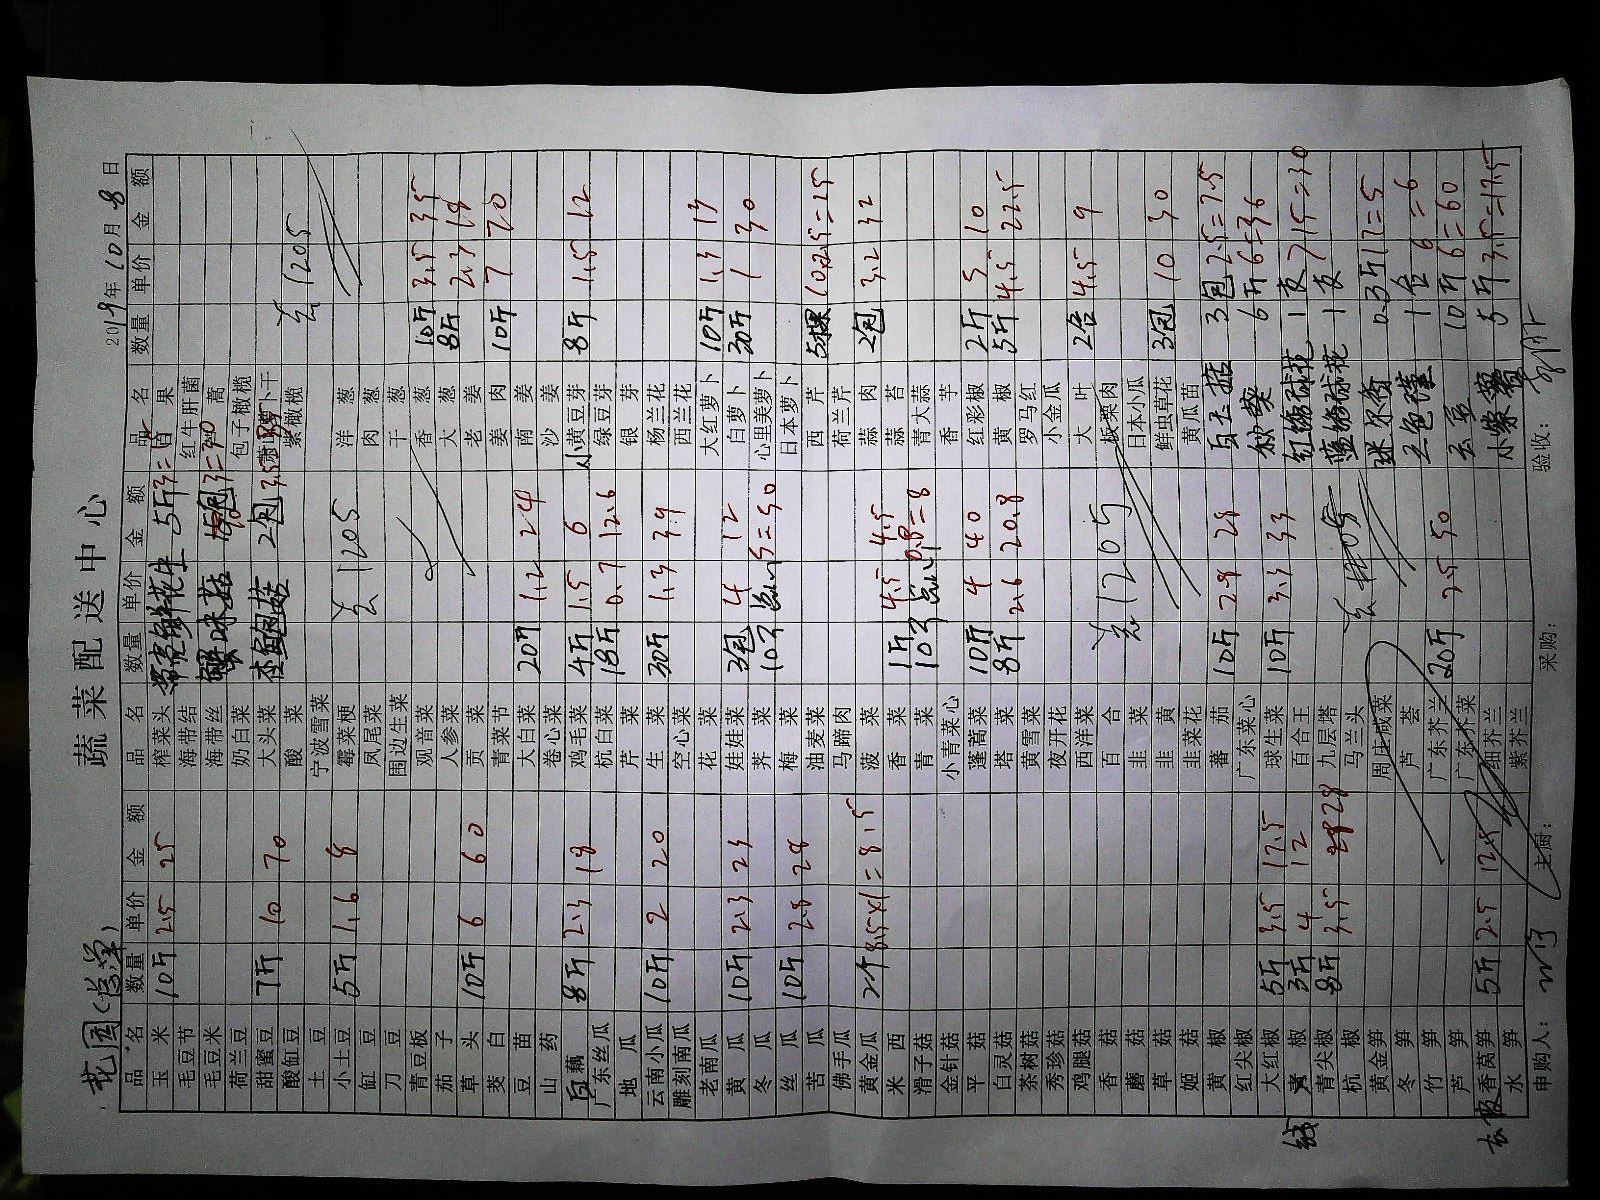 花园(医学)
蔬菜配送中心
2019年10月8日
品名 数量 单价 金额 品名 数量 单价 金额 品名 数量 单价 金额
玉米 10斤 2.5 25 榨菜头 5斤 果
毛豆节 海带结 红牛肝菌
毛豆米 海带丝 蟹味菇 蒿
荷兰豆 奶白菜 包子橄榄
甜蜜豆 7斤 10 70 大头菜 2包 3.5 萝卜干
酸缸豆 酸菜 紫橄榄
土豆 宁波雪菜
小土豆 5斤 1.6 8 霉菜梗 1205 洋葱
缸豆 凤尾菜 肉葱
刀豆 围边生菜 干葱
青豆板 观音菜 香葱 10斤 3.5 35
茄子 人参菜 大葱 8斤 2.3 18
草头 10斤 6 60 贡菜 老姜
茭白 青菜节 姜肉 10斤 7 70
豆苗 大白菜 20斤 1.2 24 南姜
山药 卷心菜 沙姜
白藕 8斤 2.3 18 鸡毛菜 4斤 1.5 6 小黄豆芽 8斤 1.5 12
广东丝瓜 杭白菜 18斤 0.7 12.6 绿豆芽
地瓜 芹菜 银芽
云南小瓜 10斤 2 20 生菜 30斤 1.3 39 杨兰花
雕刻南瓜 空心菜 西兰花
老南瓜 花菜 大红萝卜 10斤 1.3 13
黄瓜 10斤 2.3 23 娃娃菜 3包 4 12 白萝卜 30斤 1 30
冬瓜 荠菜 10 5=50 心里美萝卜
丝瓜 10斤 2.8 28 梅菜 日本萝卜
苦瓜 油麦菜 西芹 5棵 10 2.5=25
佛手瓜 马蹄肉 荷兰芹
黄金瓜 2个 8.5 菠菜 蒜肉 2包 3.2 32
米西 香菜 1斤 4.5 4.5 蒜苔
滑子菇 青菜 10 0.8=8 青大蒜
金针菇 小青菜心 香芋
平菇 蓬蒿菜 10斤 4 40 红彩椒 2斤 5 10
白灵菇 塔菜 8斤 2.6 20.8 黄椒 5斤 4.5 22.5
茶树菇 黄雪菜 罗马红
秀珍菇 夜开花 小金瓜
鸡腿菇 西洋菜 大叶 2合 4.5 9
香菇 百合 1205 板栗肉
蘑菇 韭菜 日本小瓜
草菇 韭黄 鲜虫草花 3包 10 30
姬菇 韭菜花 黄瓜苗
黄椒 蕃茄 10斤 2.8 28 白玉菇 3包 2.5=7.5
红尖椒 广东菜心 秋葵 6斤 6=36
大红椒 5斤 3.5 17.5 球生菜 10斤 3.3 33 红绣球花 1支
青椒 3斤 4 12 百合王 蓝绣球花 1支 15=30
青尖椒 8斤 3.5 28 九层塔
杭椒 马兰头 迷尔香 0.3斤 17=5
黄金笋 周生咸菜 三色堇 1合 6=6
冬笋 芦荟
竹笋 广东芥兰 20斤 2.5 50 玉豆 10斤 6=60
芦笋 广东芥菜
香莴笋 5斤 2.5 12.5 细芥兰 小紫薯 5斤 3.5=17.5
水笋 紫芥兰
申购人: 主厨: 采购: 验收: